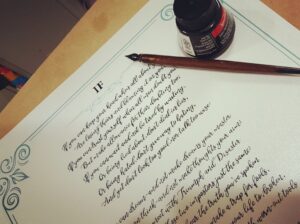 IF
If you can keep your head when all about you
Are losing theirs and blaming it on you;
If you can trust yourself when all men doubt you,
But make allowance for their doubting too;
If you can wait and not be tired by waiting,
Or being lied about, don't deal in lies,
Or being hated, don't give way to hating,
And yet don't look too good, nor talk too wise:
can dream - and not make dreams your master;
think - and not make thoughts your aim;
meet with Triumph and Disaster
two impostors just the same:
the truth you've spoken
to make a trap for fools,
your life to, broken,